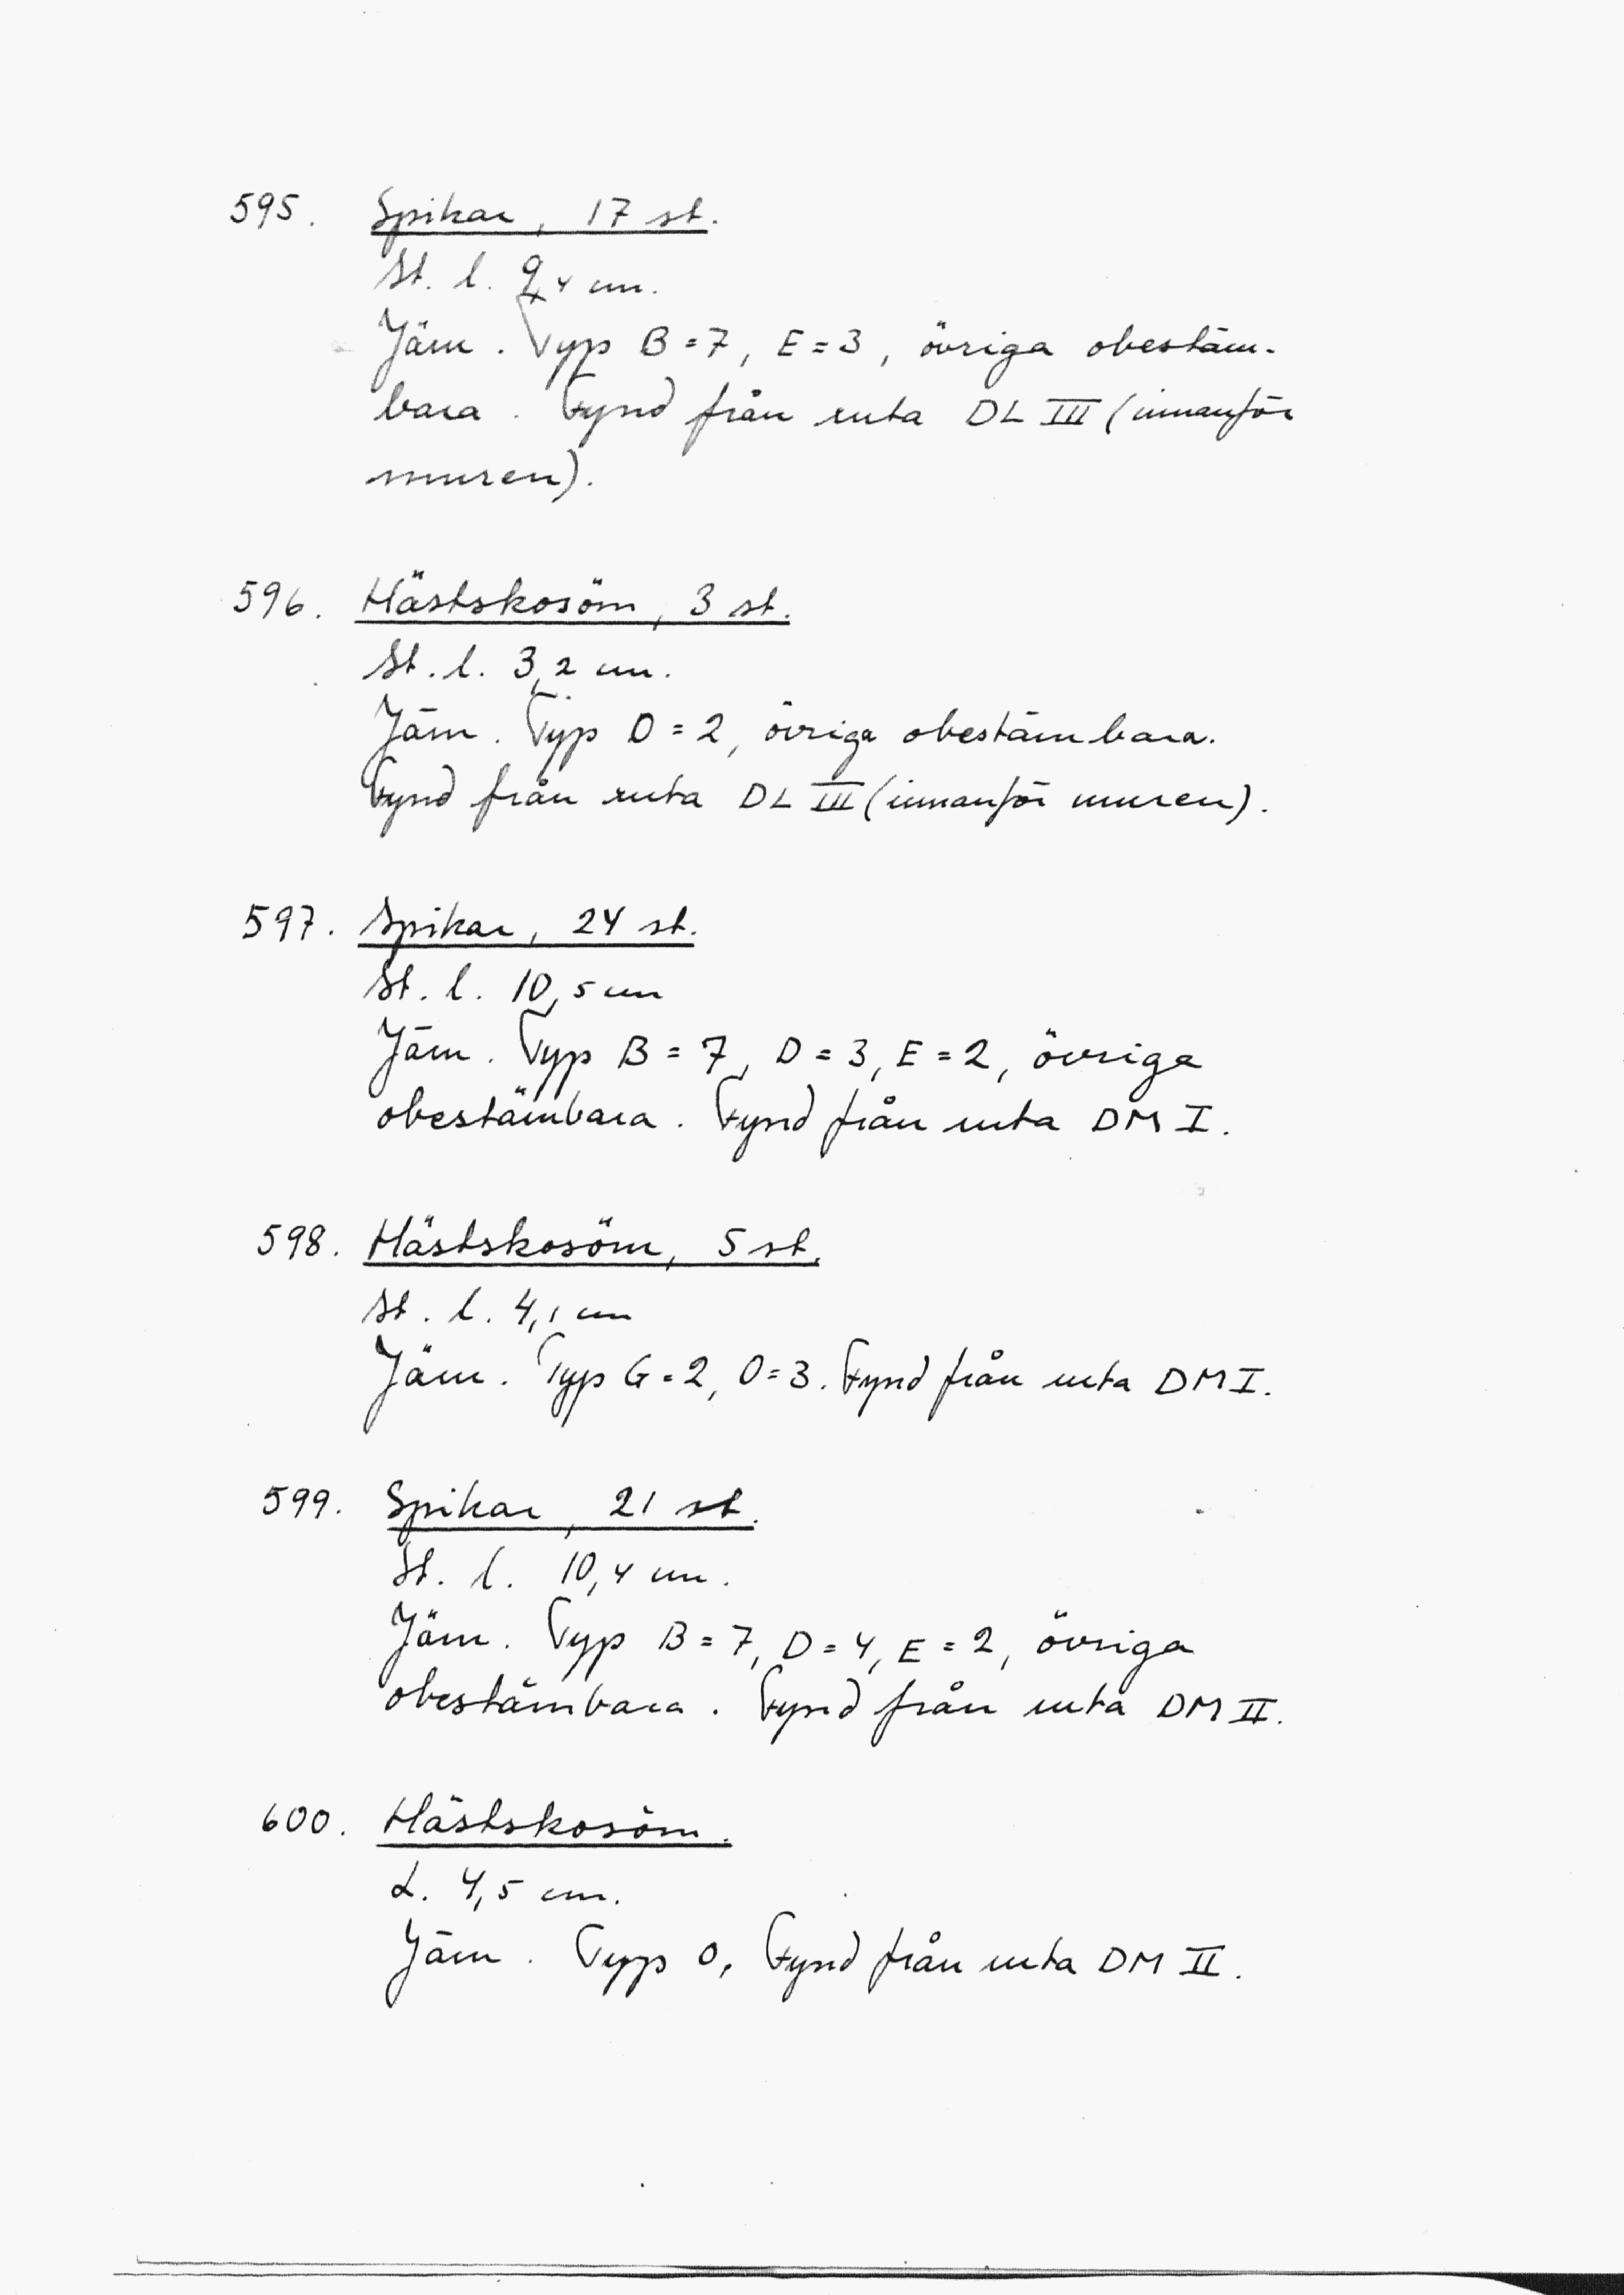 595. Spikar, 17 st.
St. l. 9,4 cm.
Järn. Typ B=7, E=3, övriga obestäm-
bara. Fynd från ruta DL III (innanför
muren).
596. Hästskosöm, 3 st.
St. l. 3,2 cm.
Järn. Typ O=2, övriga obestämbara.
Fynd från ruta DL III (innanför muren).
597. Spikar, 24 st.
St. l. 10,5 cm
Järn. Typ B=7, D=3, E=2, övriga
obestämbara. Fynd från ruta DM I.
598. Hästskosöm, 5 st.
St. l. 4,1 cm
Järn. Typ G=2, O=3. Fynd från ruta DM I.
599. Spikar, 21 st.
St. l. 10,4 cm.
Järn. Typ B=7, D=4, E=2, övriga
obestämbara. Fynd från ruta DM II.
600. Hästskosöm.
L. 4,5 cm.
Järn. Typ O, Fynd från ruta DM II.